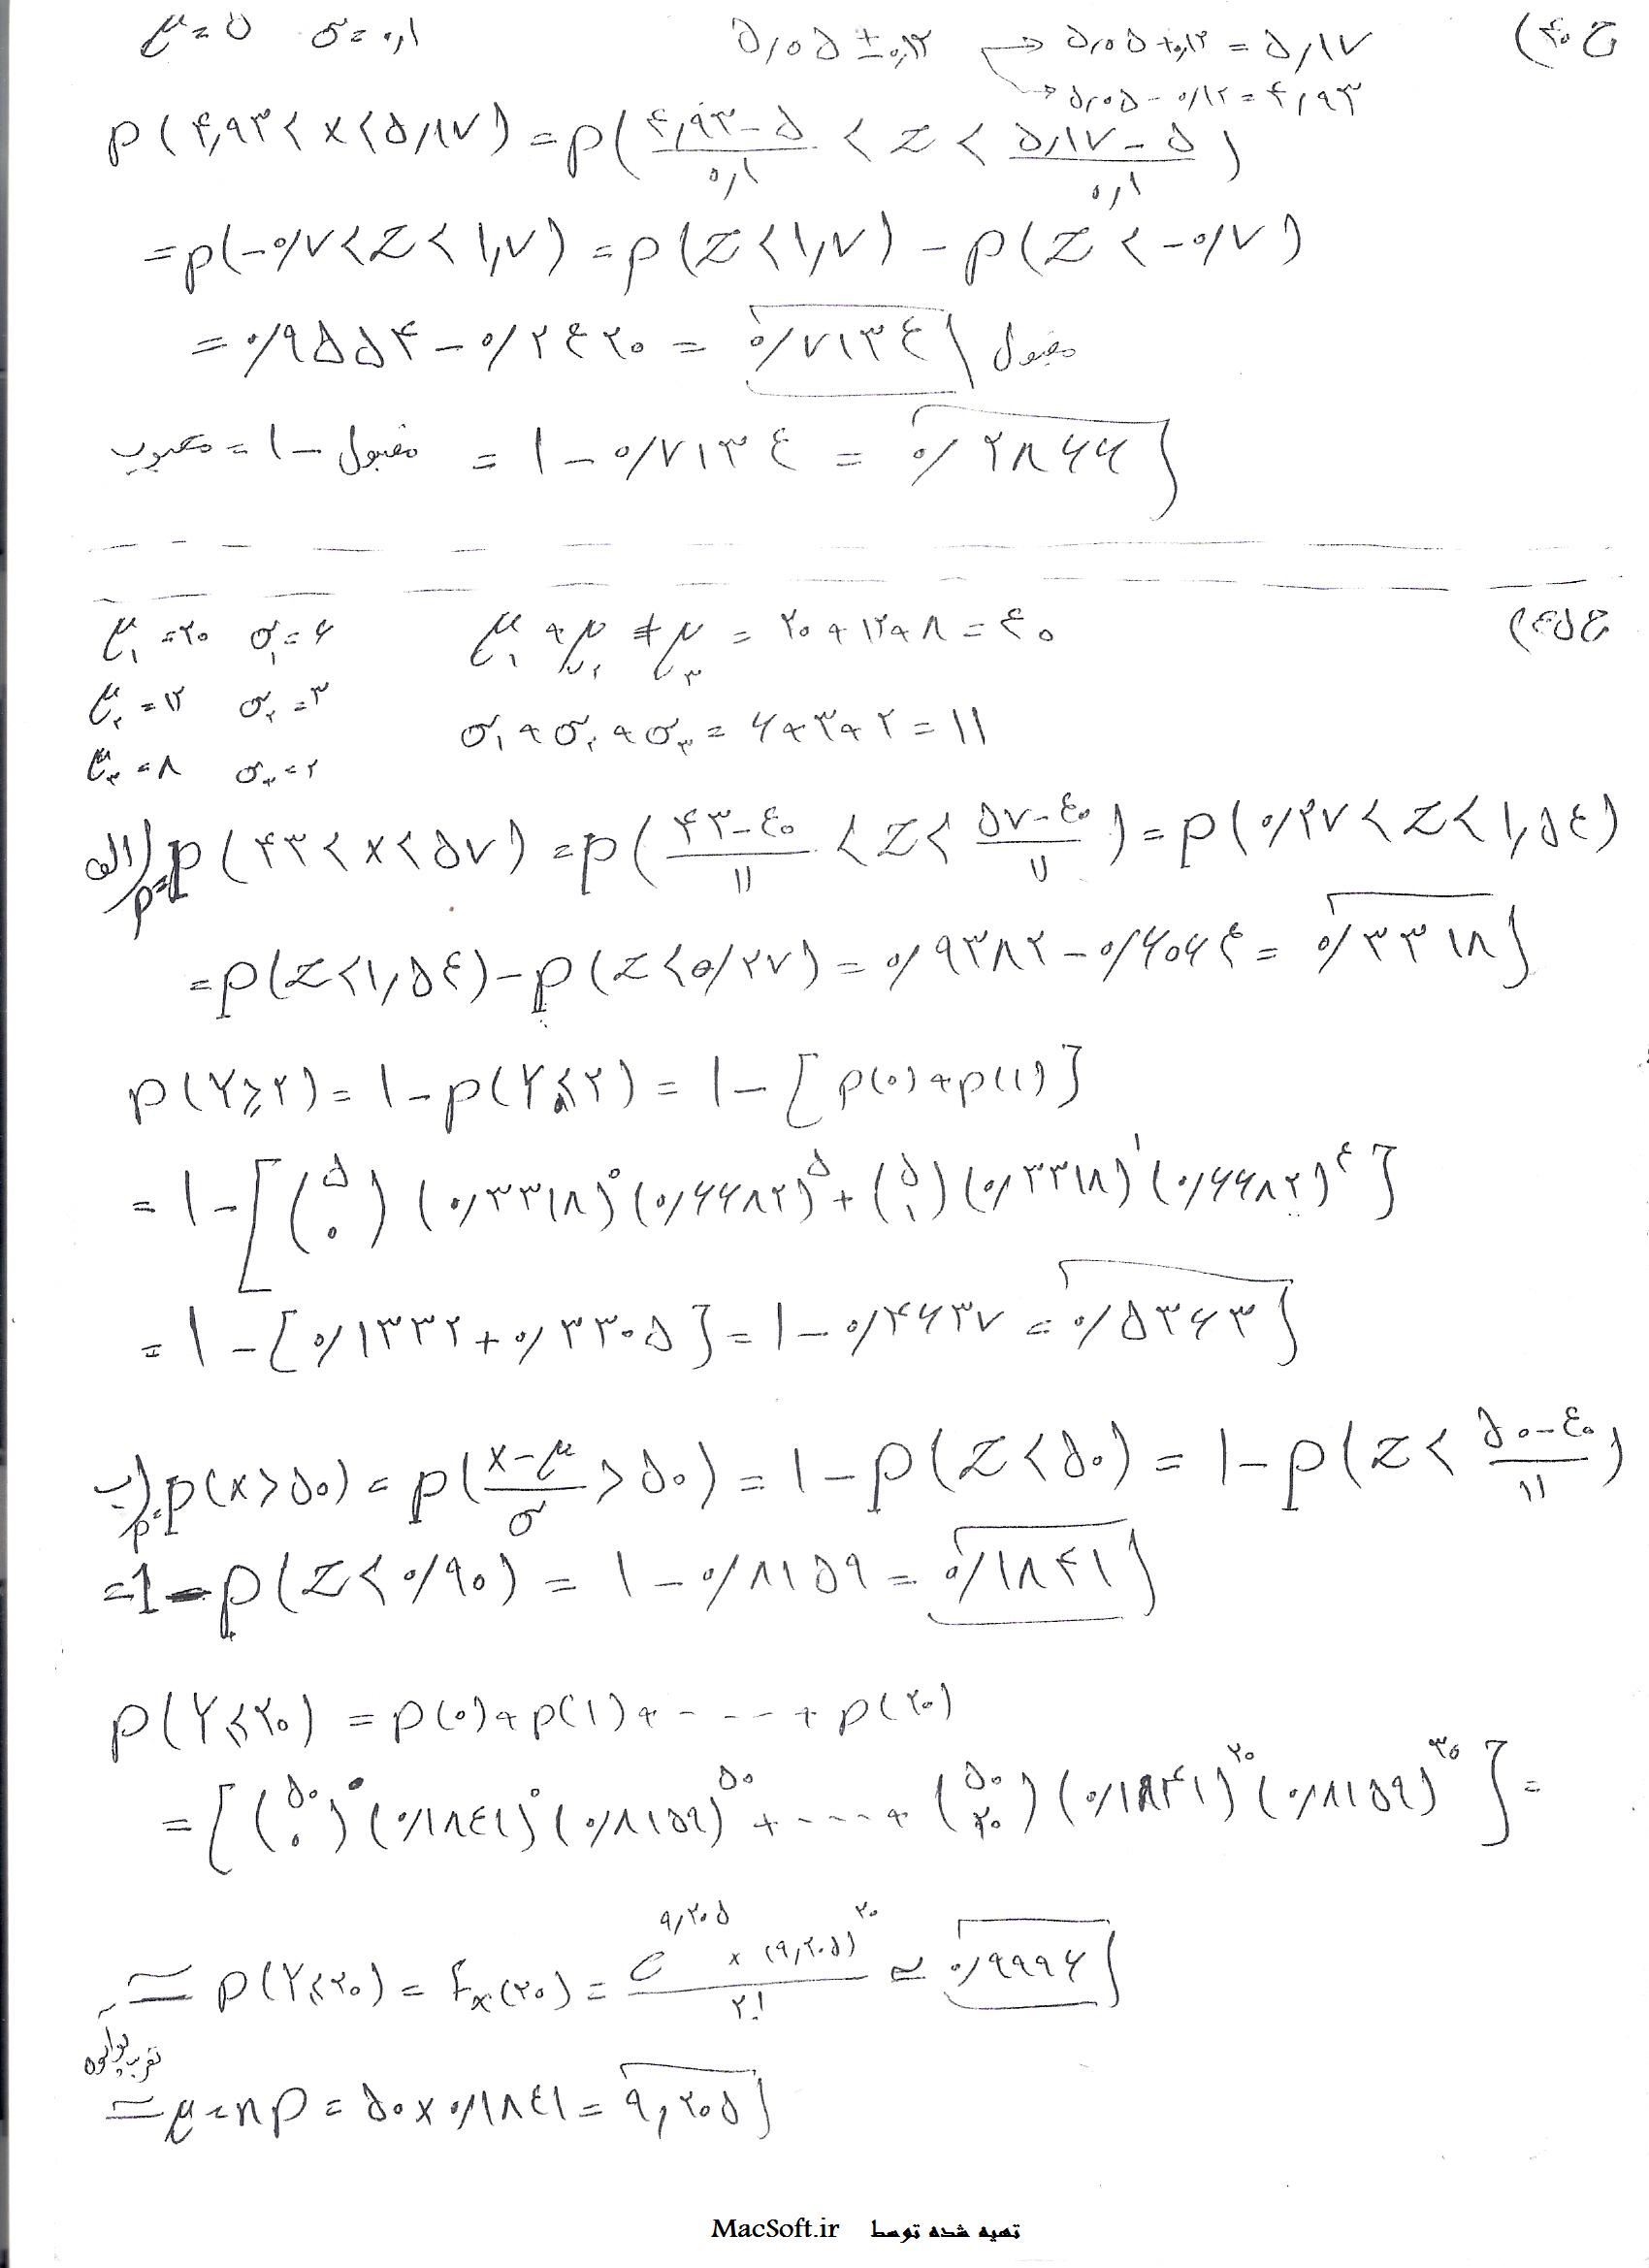 ج ۴۰) ۵٫۰۵ ± ۰٫۱۲ → ۵٫۰۵ + ۰٫۱۲ = ۵٫۱۷ μ = ۵ σ = ۰٫۱
→ ۵٫۰۵ - ۰٫۱۲ = ۴٫۹۳
p(۴٫۹۳ < x < ۵٫۱۷) = p((۴٫۹۳ - ۵)/۰٫۱ < Z < (۵٫۱۷ - ۵)/۰٫۱)
= p(-۰٫۷ < Z < ۱٫۷) = p(Z < ۱٫۷) - p(Z < -۰٫۷)
= ۰٫۹۵۵۴ - ۰٫۲۴۲۰ = ۰٫۷۱۳۴ مقبول
معیوب = ۱ - مقبول = ۱ - ۰٫۷۱۳۴ = ۰٫۲۸۶۶
ج ۴۵) μ₁ + μ₂ + μ₃ = ۲۰ + ۱۲ + ۸ = ۴۰ μ₁ = ۲۰ σ₁ = ۶
μ₂ = ۱۲ σ₂ = ۳
σ₁ + σ₂ + σ₃ = ۶ + ۳ + ۲ = ۱۱
μ₃ = ۸ σ₃ = ۲
الف) p = p(۴۳ < x < ۵۷) = p((۴۳ - ۴۰)/۱۱ < Z < (۵۷ - ۴۰)/۱۱) = p(۰٫۲۷ < Z < ۱٫۵۴)
= p(Z < ۱٫۵۴) - p(Z < ۰٫۲۷) = ۰٫۹۳۸۲ - ۰٫۶۰۶۴ = ۰٫۳۳۱۸
p(Y ⩾ ۲) = ۱ - p(Y < ۲) = ۱ - [p(۰) + p(۱)]
= ۱ - [(۵ ۰)(۰٫۳۳۱۸)^۰ (۰٫۶۶۸۲)^۵ + (۵ ۱)(۰٫۳۳۱۸)^۱ (۰٫۶۶۸۲)^۴]
= ۱ - [۰٫۱۳۳۲ + ۰٫۳۳۰۵] = ۱ - ۰٫۴۶۳۷ = ۰٫۵۳۶۳
ب) p = p(x > ۵۰) = p((x - μ)/σ > ۵۰) = ۱ - p(Z < ۵۰) = ۱ - p(Z < (۵۰ - ۴۰)/۱۱)
= 1 - p(Z < ۰٫۹۰) = ۱ - ۰٫۸۱۵۹ = ۰٫۱۸۴۱
p(Y ⩽ ۲۰) = p(۰) + p(۱) + ---- + p(۲۰)
= [(۵۰ ۰)(۰٫۱۸۴۱)^۰ (۰٫۸۱۵۹)^۵۰ + ---- + (۵۰ ۲۰)(۰٫۱۸۴۱)^۲۰ (۰٫۸۱۵۹)^۳۰] =
≃ p(Y ⩽ ۲۰) = Fx(۲۰) = e^۹٫۲۰۵ × (۹٫۲۰۵)^۲۰ / ۲! ≃ ۰٫۹۹۹۶
تقریب پواسون
≃ μ = np = ۵۰ × ۰٫۱۸۴۱ = ۹٫۲۰۵
تهیه شده توسط MacSoft.ir